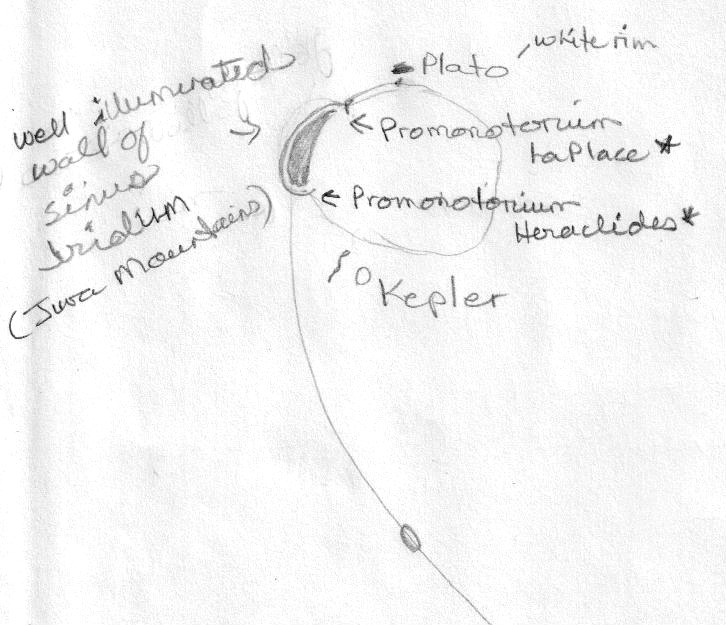 well illumerated
wall of
Sinus
Iridum
(Jura Mountains)
Plato , white rim
← Promonotorium
LaPlace *
← Promonotorium
Heraclides *
Kepler